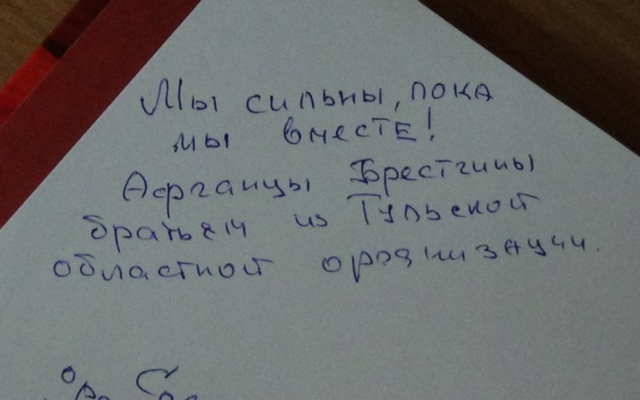 Мы сильны, пока
мы вместе!
Афганцы Брестчины
братьям из Тульской
областной организации.